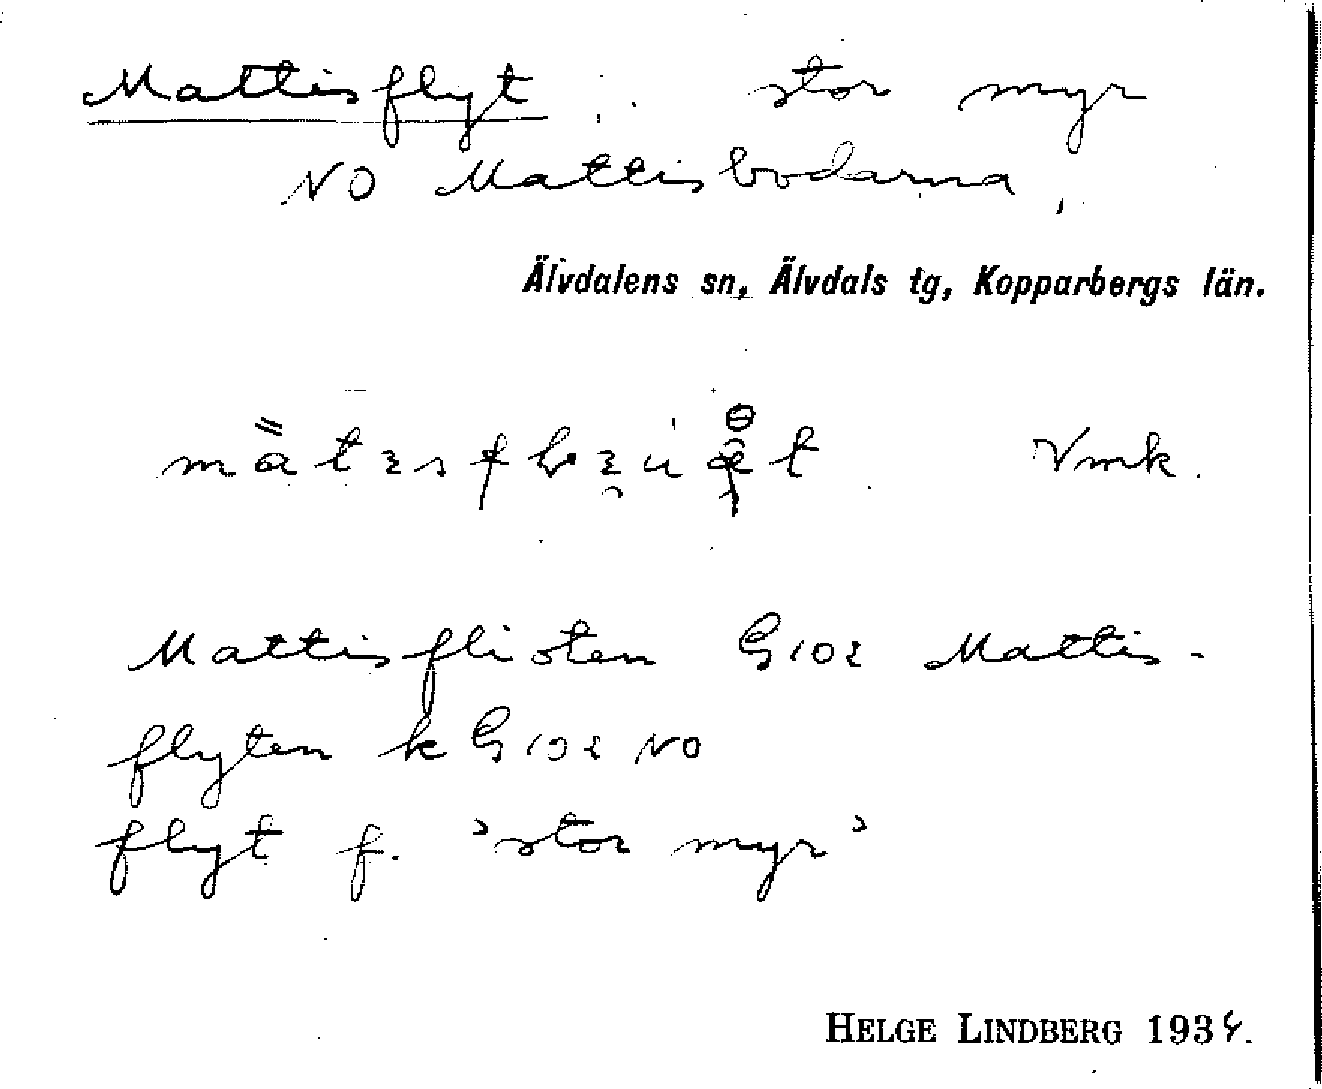 Mattisflyt : stor myr
NO Mattisbodarna,
Älvdalens sn, Älvdals tg, Kopparbergs län.
Vmk.
Mattisflioten G102 Mattis-
flyten k G102 NO
flyt f. 'stor myr'
HELGE LINDBERG 1934.